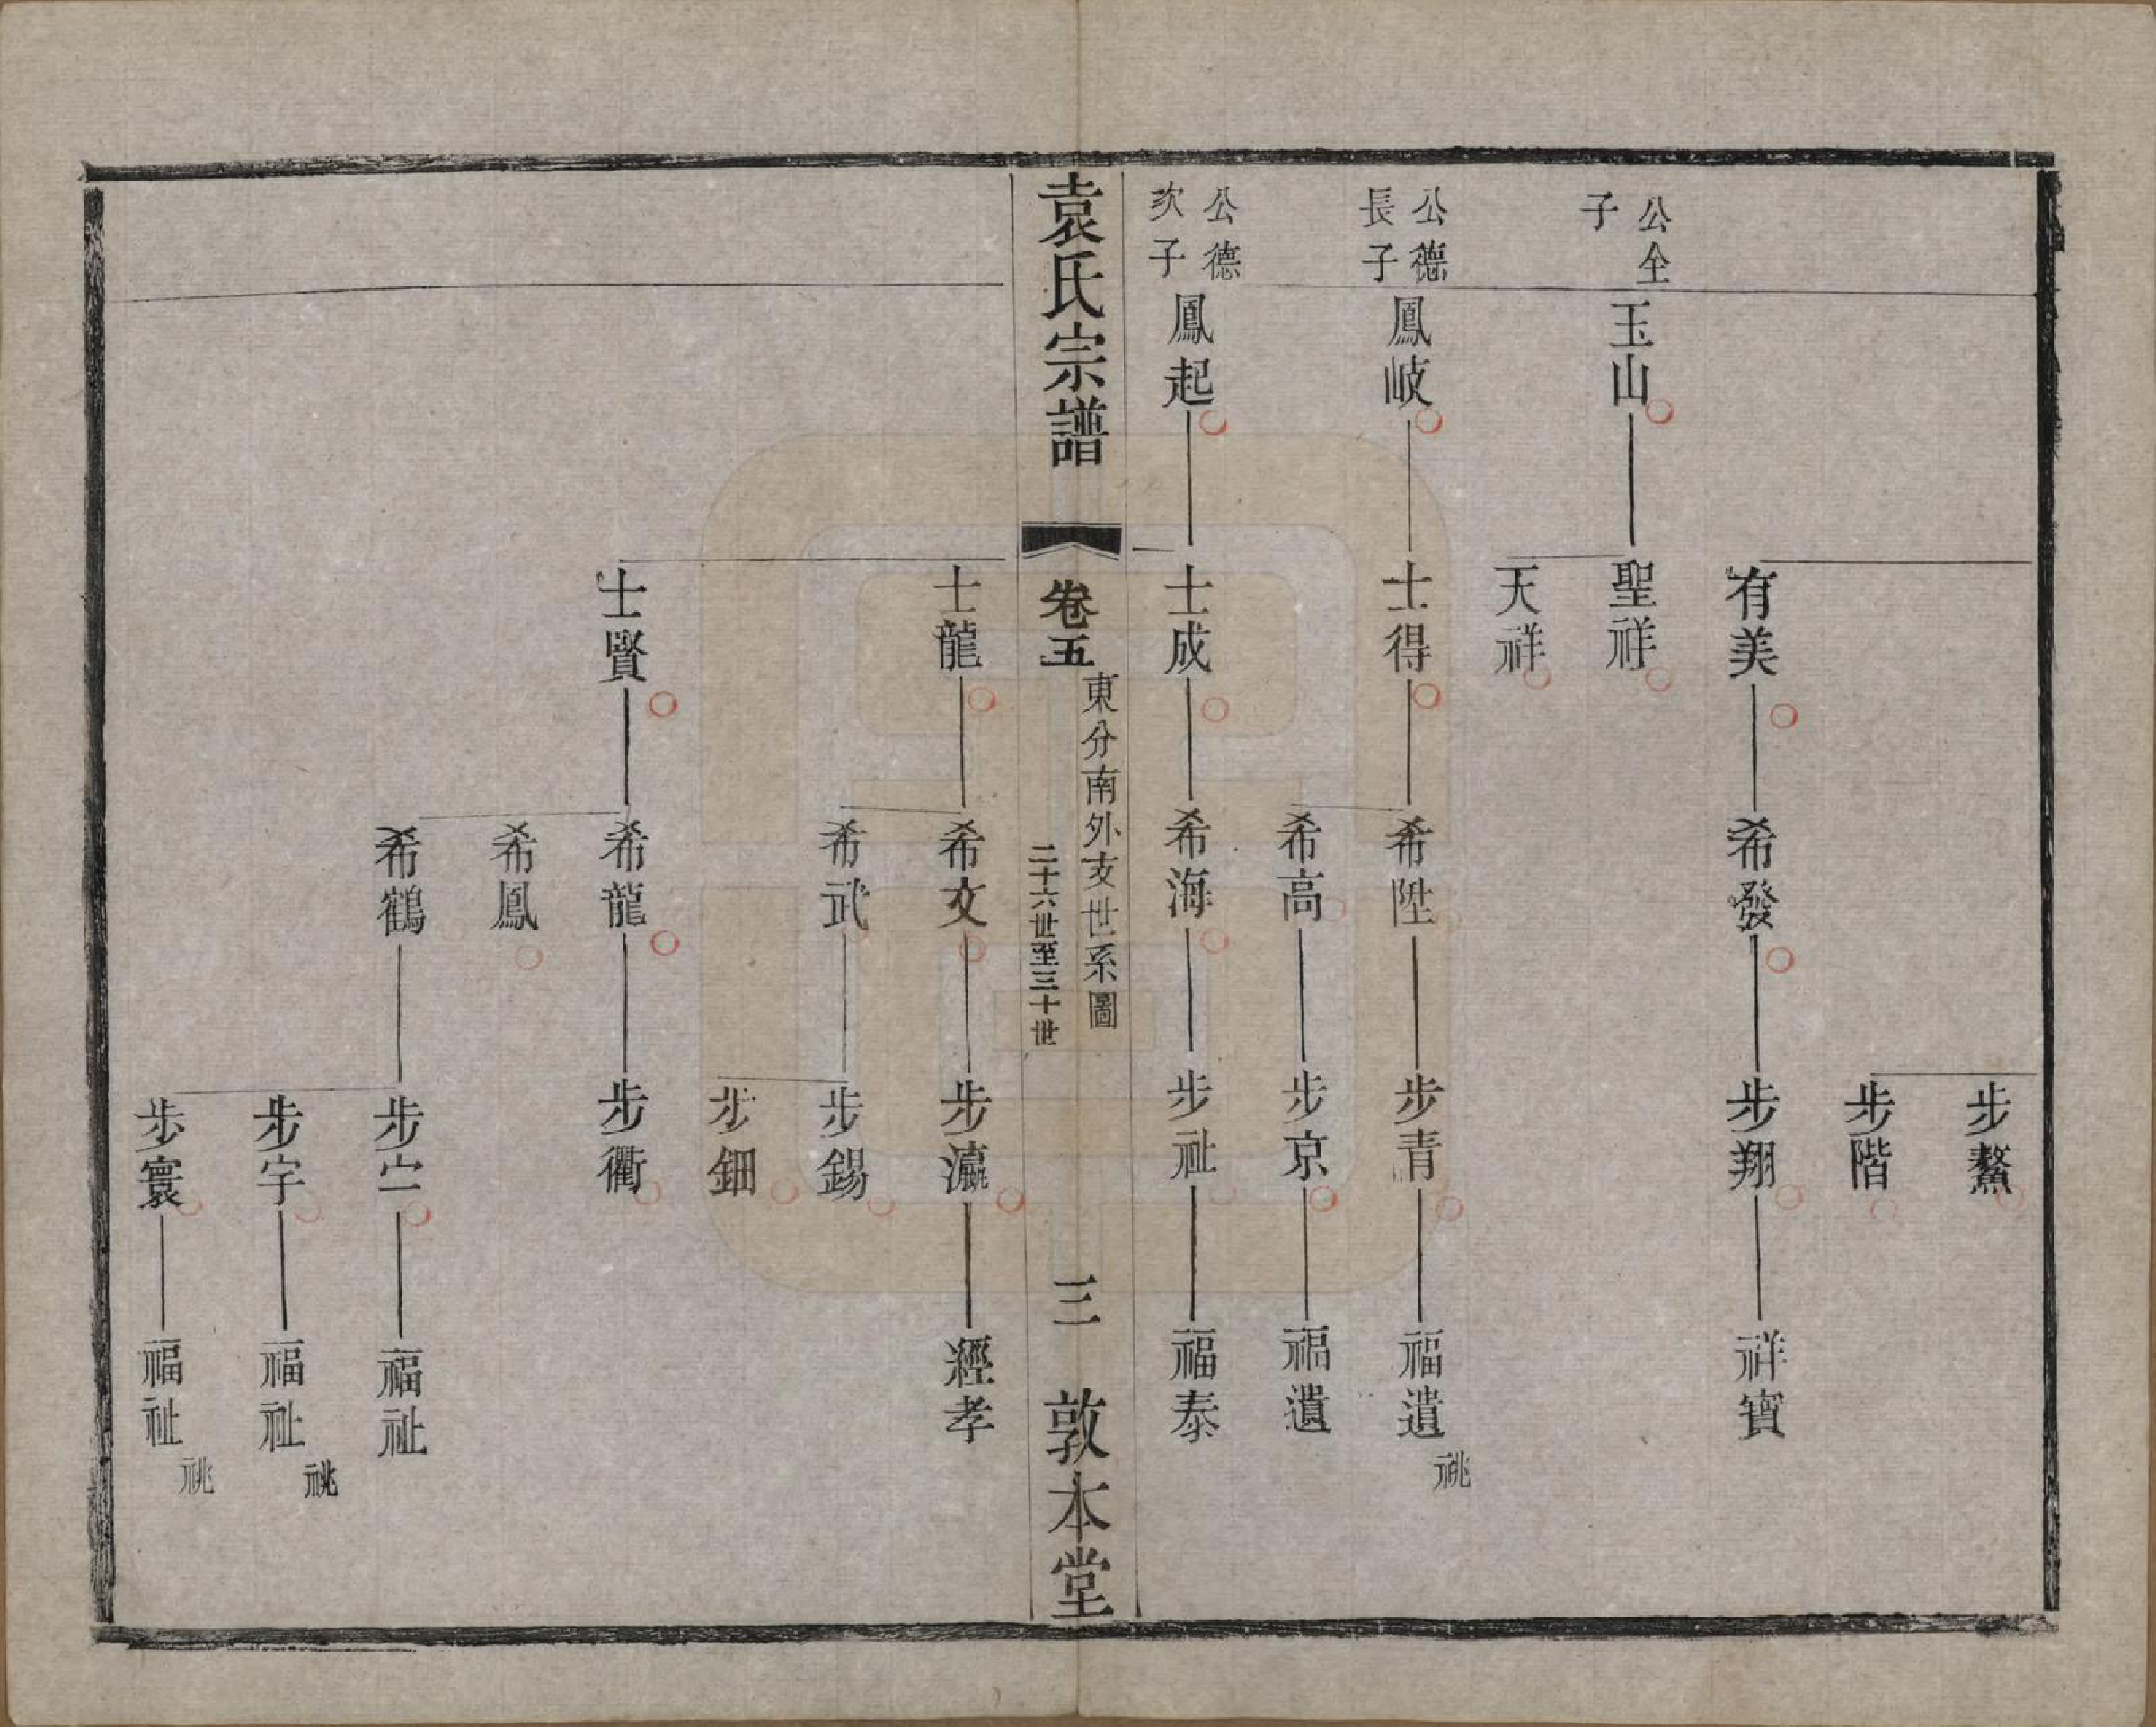 步鰲
步階
有美
希發
步翔
祥寶
公全
子
玉山
聖祥
天祥
公德
長子
鳳岐
士得
希陞
步青
福遺
祧
希高
步京
福遺
公德
次子
鳳起
士成
希海
步祉
福泰
袁氏宗譜
卷五
東分南外支世系圖
二十六世至三十世
三
敦本堂
士龍
希文
步瀛
經孝
希武
步錫
步鈿
士賢
希龍
步衢
希鳳
希鶴
步宀
福祉
步宇
福祉
祧
步寰
福祉
祧